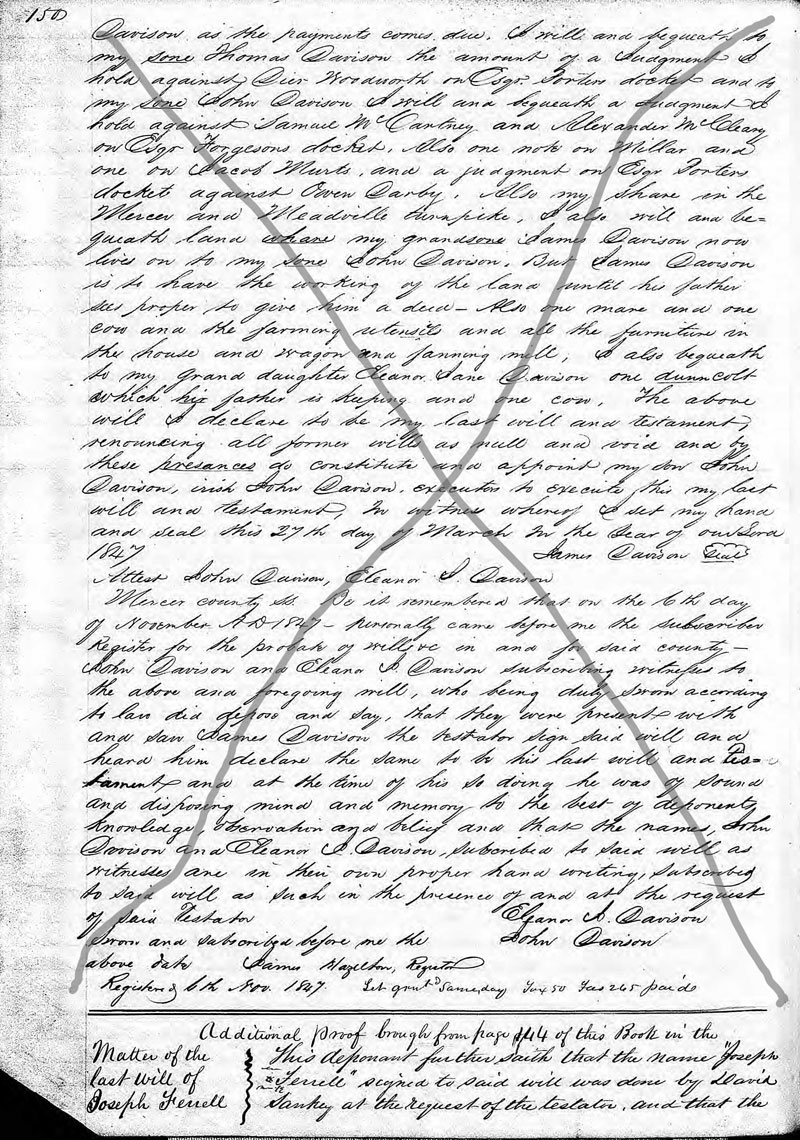 150
Davison as the payments comes due. I will and bequeath to
my sone Thomas Davison the amount of a Judgment I
hold against Dier Woodworth on Esqr. Porters docket and to
my sone John Davison I will and bequeath a Judgment I
hold against Samuel McCartney and Alexander McCleary
on Esqr Forgesons docket. Also one note on Millar and
one on Jacob Murts, and a judgment on Esqr Porters
docket against Owen Darby. Also my share in the
Mercer and Meadville turnpike, I also will and be=
queath land whare my grandsone James Davison now
lives on to my sone John Davison. But James Davison
is to have the working of the land until his father
sees proper to give him a deed – Also one mare and one
cow and the farming utensils and all the furniture in
the house and wagon and fanning mill, I also bequeath
to my grand daughter Eleanor Jane Davison one dunn colt
which his father is keeping and one cow. The above
will I declare to be my last will and testament,
renouncing all former wills as null and void and by
these presances do constitute and appoint my son John
Davison, irish John Davison, executors to execute this my last
will and testament, In witness whereof I set my hand
and seal this 27th day of March In the Year of our Lord
1847 James Davison Seal
Attest John Davison, Eleanor I. Davison
Mercer county SS. Be it remembered that on the 6th day
of November AD 1847 – personally came before me the subscriber
Register for the probate of wills &c in and for said county –
John Davison and Eleanor I. Davison subscribing witnesses to
the above and foregoing will, who being duly sworn according
to law did depose and say, that they were present with
and saw James Davison the testator sign said will and
heard him declare the same to be his last will and tes=
tament and at the time of his so doing he was of sound
and disposing mind and memory to the best of deponents
knowledge, observation and belief and that the names, John
Davison and Eleanor I. Davison, subscribed to said will as
witnesses are in their own proper hand writing, subscribed
to said will as such in the presence of and at the request
of said Testator Eleanor I. Davison
Sworn and subscribed before me the John Davison
above date James Hazelton, Register
Registered 6th Nov. 1847. Let grntd same day Tax 50 Fees 265 paid
Additional proof brough from page 144 of this Book in the
Matter of the
last will of
Joseph Ferrell
This deponant further saith that the name "Joseph
Ferrell" signed to said will was done by David
Sankey at the request of the testator, and that the